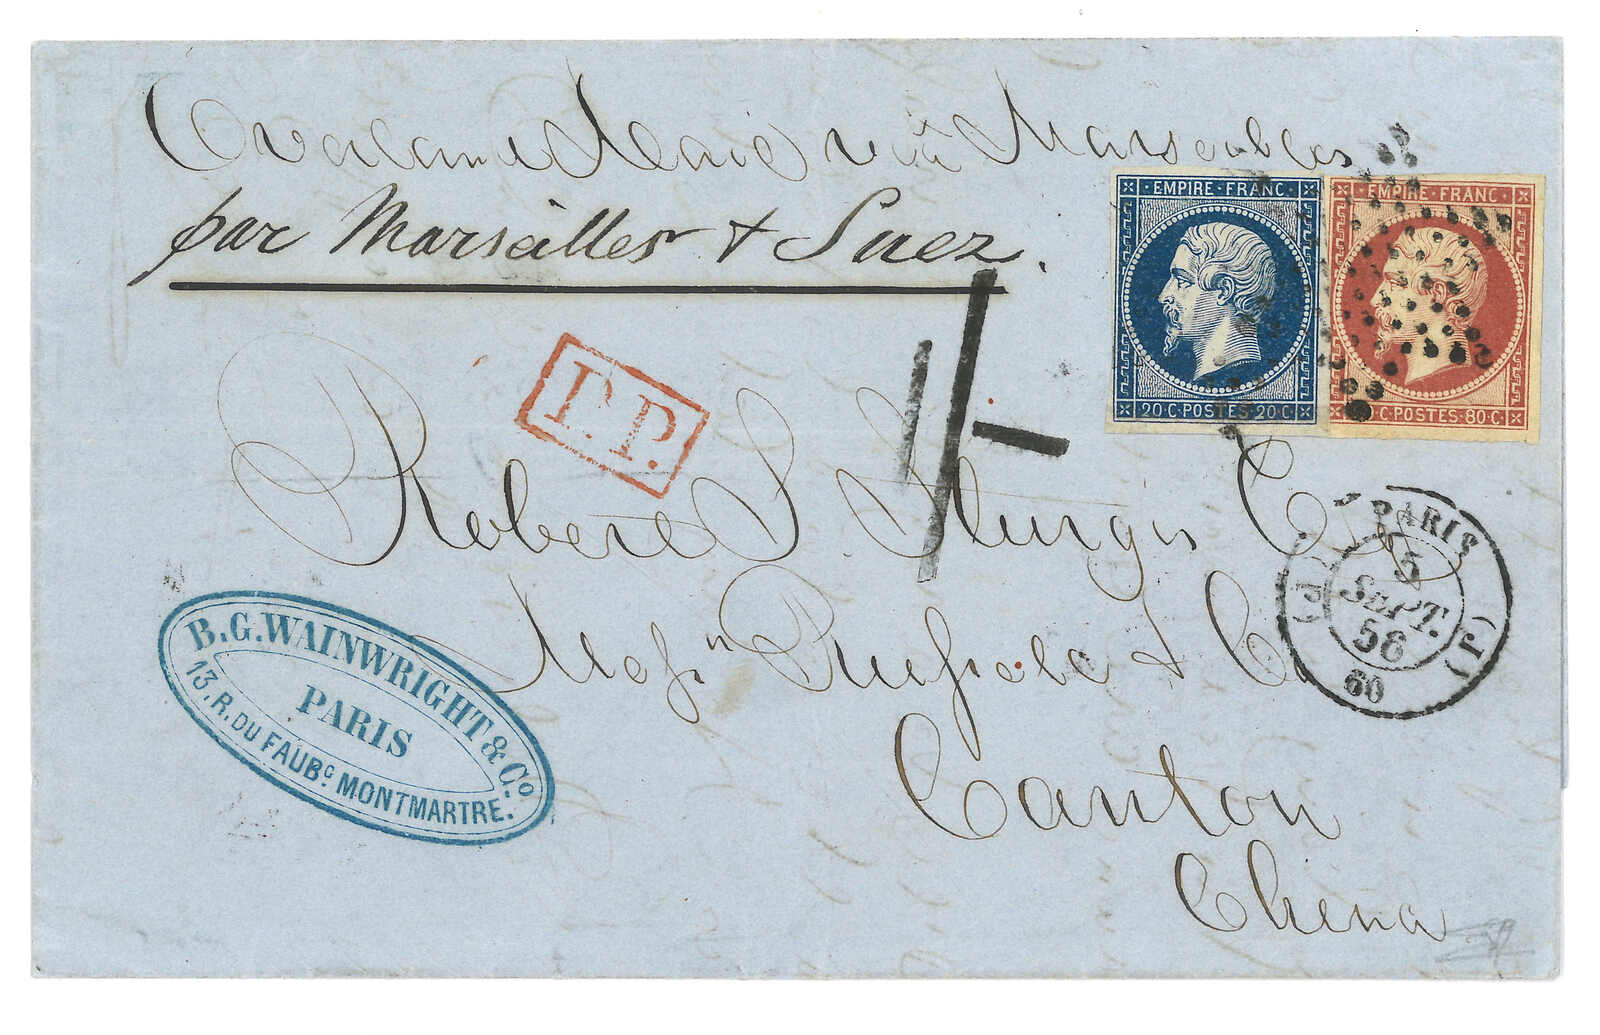 Overland Mail via Marseilles
par Marseilles & Suez.
EMPIRE · FRANC ·
20 C · POSTES · 20 C ·
EMPIRE · FRANC ·
C · POSTES · 80 C ·
P.P.
1/-
Robert S. Sturgis Esq
PARIS
5
SEPT.
56
60
Messn Russell & Co
B.G. WAINWRIGHT & Co.
PARIS
13, R. DU FAUBG MONTMARTRE.
Canton
China